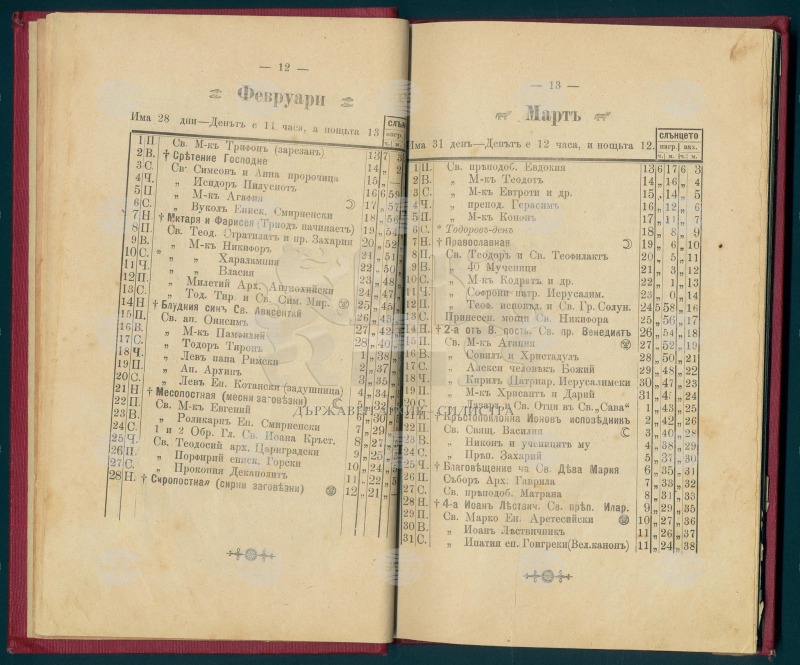 — 12 —
Февруари
Има 28 дни—Денътъ е 11 часа, а нощьта 13
1 П Св. М-къ Трифонъ (зарезанъ) 13 7 3
2 В. † Срѣтение Господне 14 „ 2
3 С. Св. Симеонъ и Анна пророчица 15 „
4 Ч. „ Исидоръ Пилусиотъ 16 6 59
5 П „ М-къ Агафия 17 „ 57
6 С. „ Вуколъ Еписк. Смирненски 18 „
7 Н † Митаря и Фарисея (Триодъ начинаетъ) 19 „ 54
8 П. Св. Теод. Стратилатъ и пр. Захария 20 „ 52
9 В. „ М-къ Никифоръ 21 „ 51
10 С. * „ Харалампия 22 „ 50
11 Ч. „ Власия 23 „ 48
12 П. „ Милетий Арх. Антиохийски 24 „ 47
13 С. „ Тод. Тир. и Св. Сим. Мир. 25 „
14 Н † Блудния синъ Св. Авксентай 26 „
15 П. Св. ап. Онисимъ 27 „ 42
16 В. „ М-къ Памфилий 28 „ 40
17 С. „ Тодоръ Тиронъ 1 „ 38
18 Ч. „ Левъ папа Римски 2 „ 37
19 П. „ Ап. Архипъ 3 „ 35
20 С. „ Левъ Еп. Котански (задушница) 4 „ 34
21 Н † Месопостная (месни заговѣзни)
22 П. Св. М-къ Евгений
23 В. „ Поликарпъ Еп. Смирненски 7 „ 29
24 С. 1 и 2 Обр. Гл. Св. Иоана Кръст. 8 „ 27
25 Ч. Св. Теодосий арх. Цариградски 9 „ 25
26 П. „ Порфирий еписк. Горски 10 „ 24
27 С. „ Прокопия Декаполитъ 11 „ 22
28 Н. † Сиропостная (сирни заговѣзни) 12 „ 21
— 13 —
Мартъ
Има 31 день—Денътъ е 12 часа, и нощьта 12.
СЛЪНЦЕТО
изгр. зах.
ч. м. ч. м.
1 П. Св. прѣподоб. Евдокия 13 6 17 6 3
2 В. „ М-къ Теодотъ 14 „ 16 „ 4
3 С. „ М-къ Евтроти и др. 15 „ 14 „ 5
4 Ч. „ препод. Герасимъ 16 „ 12 „ 6
5 П. „ М-къ Кононъ 17 „ 11 „ 7
6 С. * Тодоровъ-денъ 18 „ 8 „ 9
7 Н. † Православная 19 „ 6 „ 10
8 П. Св. Теодоръ и Св. Теофилактъ 20 „ 5 „ 11
9 В. „ 40 Мученици 21 „ 3 „ 12
10 С. „ М-къ Кодратъ и др. 22 „ 1 „ 13
11 Ч. „ Софрони патр. Иерусалим. 23 „ 0 „ 14
12 П. „ Теоф. исповѣд. и Св. Гр. Солун. 24 5 58 „ 16
13 С. Принесен. мощи Св. Никифора 25 „ 56 „ 17
14 Н. † 2-а отъ В. пость. Св. пр. Венедиктъ 26 „ 54 „ 18
15 П. Св. М-къ Агапия 27 „ 52 „ 19
16 В. „ Совилъ и Христадулъ 28 „ 50 „ 21
17 С. „ Алекси человѣкъ Божий 29 „ 48 „ 22
18 Ч. „ Кирилъ Патриар. Иерусалимски 30 „ 47 „ 23
19 П. „ М-къ Хрисантъ и Дарий 31 „ „ 24
20 С. „ Лазаръ и Св. Отци въ Св. „Сава“ 1 „ 43 „ 25
21 Н. † Кръстопоклонна Ионовъ исповѣдникъ 2 „ 42 „ 26
22 П. Св. Свящ. Василия 3 „ 40 „ 28
23 В. „ Никон и ученицитѣ му 4 „ 38 „ 29
24 С. „ Прѣп. Захарий 5 „ 37 „ 30
25 Ч. † Благовѣщение на Св. Дѣва Мария 6 „ 35 „ 31
26 П. Съборъ Арх. Гавриila 7 „ 33 „ 32
27 С. Св. прѣподоб. Матрана 8 „ 31 „ 33
28 Н. † 4-а Иоанъ Лѣствич. Св. прѣп. Илар. 9 „ 29 „ 35
29 П. Св. Марко Еп. Аретесийски 10 „ 27 „ 36
30 В. „ Иоанъ Лѣствичникъ 11 „ 26 „ 37
31 С. „ Ипатия еп. Гонгреки (Вел.канонъ) 11 „ 24 „ 38
ДЪРЖАВЕН АРХИВ – СИЛИСТРА